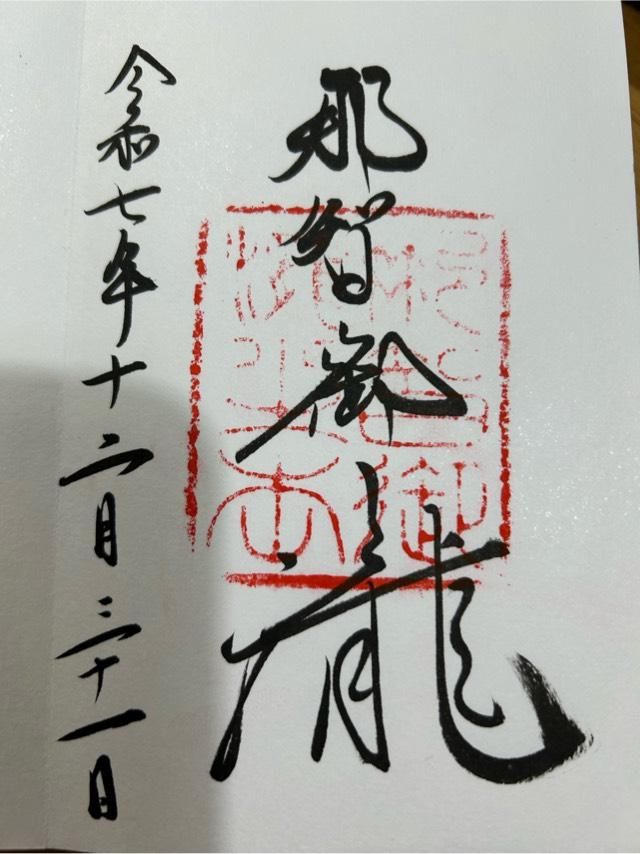 那智御瀧
令和七年十二月三十一日